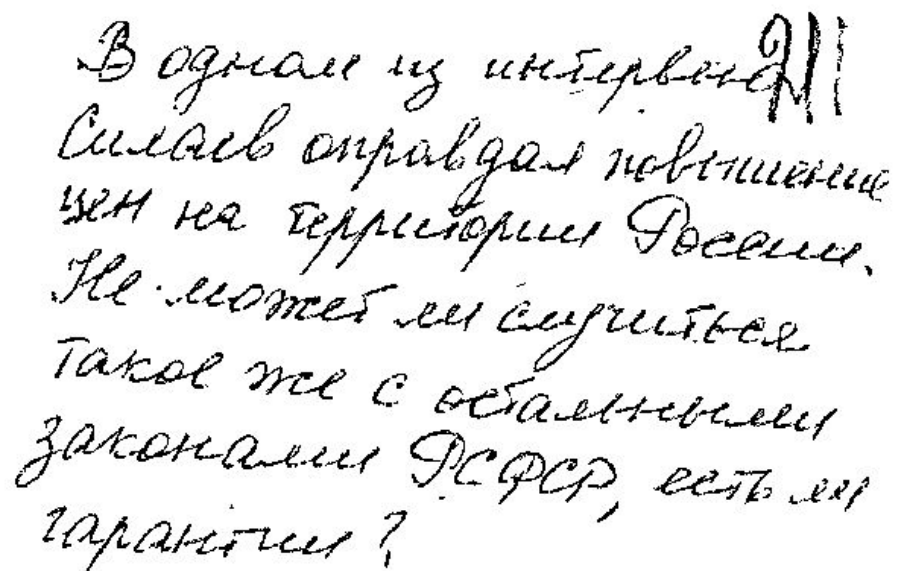 В одном из интервью 211
Силаев оправдал повышение
цен на территории России.
Не может ли случиться
такое же с остальными
законами РСФСР, есть ли
гарантии?